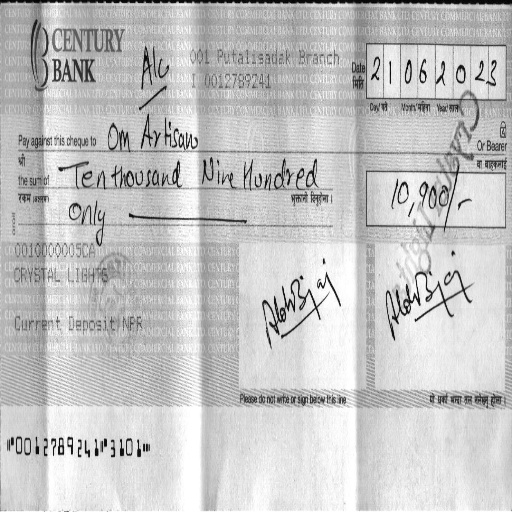 CENTURY
BANK
A/c
001 Putalisadak Branch
1 0012789241
Date
मिति
2 1 0 6 2 0 2 3
Day/ गते Month/ महिना Year/ साल
Pay against this cheque to Om Artisan
Or Bearer
श्री
वा वाहकलाई
the sum of Ten thousand Nine Hundred
रकम (अक्षरूपी) भुक्तानी दिनुहोला ।
Only
10,900/-
0010000005CA
CRYSTAL LIGHTS
Current Deposit NPR
Please do not write or sign below this line
⑈0012789241⑈3101⑈